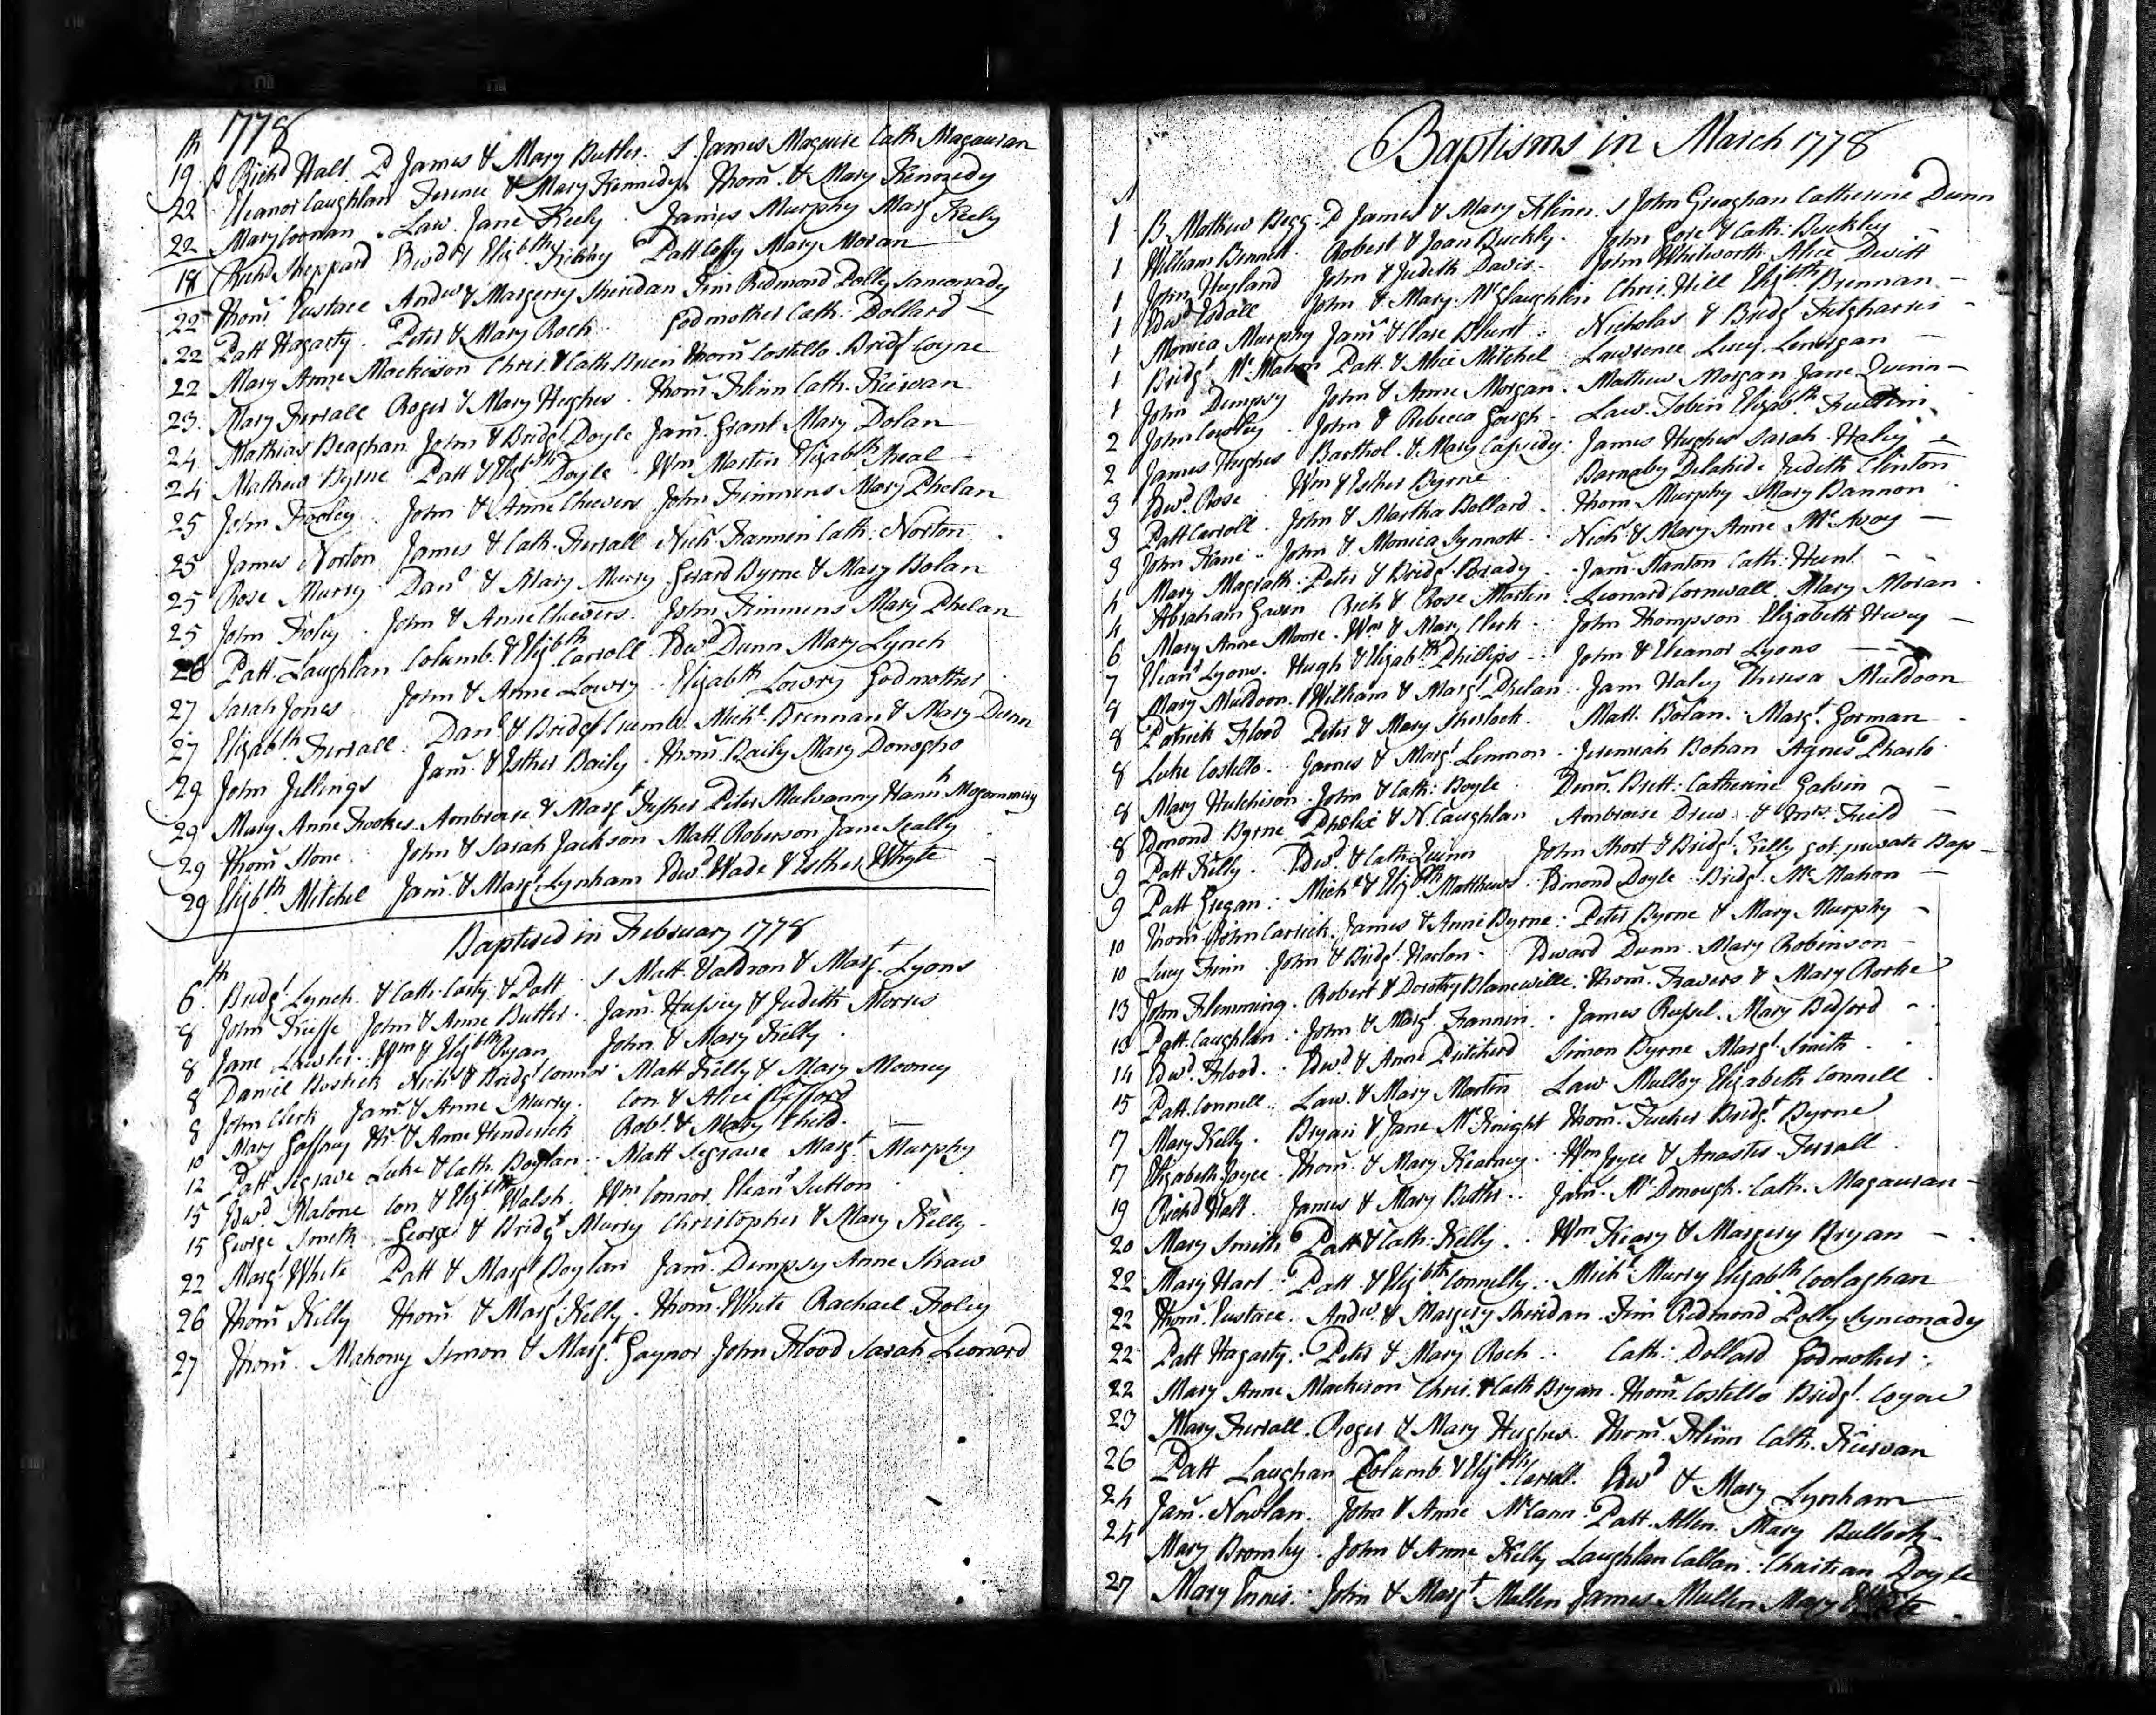 1778
th
19 B Richd Hall P James & Mary Butler. S James Maguire Cath Magauran
22 Eleanor Laughlan Terence & Mary Kennedy Thom. & Mary Kennedy
22 Mary Coonan. Law. Jane Keely. James Murphy Marg Keely
18 Richd Sheppard Edwd & Elizbth Patt Coffy Mary Moran
22 Thom Eustace Andw & Margerry Sheridan Tim Redmond Polly Sanconady
22 Patt Hagarty. Peter & Mary Roch Godmother Cath: Dollard —
22 Mary Anne Mackison Chris. & Cath Brien Thom Costello. Bridgt Coyne
23. Mary Ferrall Roger & Mary Hughes. Thom. Flinn Cath. Kierwan
24. Mathias Beaghan John & Bridgt Doyle Jam. Grant Mary Dolan
24 Mathew Byrne Patt & Elizbth Doyle. Wm Martin Elizabth Neal
25 John Fooley. John & Anne Cheevers John Timmens Mary Phelan
25 James Norton James & Cath. Ferrall Nichs Fannin Cath. Norton
25 Rose Murry Danl & Mary Murry Gerard Byrne & Mary Bolan
25 John Foley. John & Anne Cheevers. John Timmens Mary Phelan
26 Patt. Laughlan Columb. & Elizbth Carroll. Edwd Dunn Mary Lynch
27 Sarah Jones John & Anne Lowry. Elizabth Lowry Godmother
27 Elizabth Ferrall. Danl & Bridgt Michl Brennan & Mary Dunn
29 John Jellings Jam. & Esther Baily. Thom. Baily Mary Donogho
29 Mary Anne Fookes. Ambrose & Margt Fisher Peter Mulvanny Hanh Mogommery
29 Thom Stone John & Sarah Jackson Matt Roberson Jane Scally
29 Elizbth Mitchel Jam. & Margt Lynham Edwd Wade & Esther Whyte
Baptised in February 1778
th
6. Bridgt Lynch & Cath. Carty & Patt S Matt. Valdron & Margt Lyons
8 John Trieffe John & Anne Butler. Jam. Hussey & Judith Morris
8 Jane Lawler. Wm & Elizbth Ryan John & Mary Kelly.
8 Daniel Bostick Nichs & Bridgt Connor Matt Kelly & Mary Mooney
8 John Clerk Jam. & Anne Murry. Con. & Alice Clifford
10 Mary Gaffney Hr. & Anne Henderick Robt. & Mary Child. —
12 Patt Segrave Luke & Cath. Boylan. Matt Segrave Margt Murphy
15 Edwd Malone Con & Elizbth Walsh. Wm Connor Eleanr Sutton
15 George Smith George & Bridgt Murry Christopher & Mary Kelly
22 Margt White Patt & Margt Boylan Jam. Dempsy Anne Shaw
26 Thom Kelly Thom & Margt Kelly. Thom. White Rachael Foley
27 Thom. Mahony Simon & Margt Gaynor John Flood Sarah Leonard
Baptisms in March 1778
1 B. Mathew Begg. P James & Mary Flinn. S John Greaghan Catherine Dunn
1 William Bennett Robert & Joan Buckly. John Gore & Cath. Buckley
1 John Heyland John & Judith Davis. John Whitworth Alice Dewitt
1 Edwd Esdall John & Mary McGlaughlin Chris. Hill Elizbth Brennan —
1 Monica Murphy Jam. & Clare Blunt. Nicholas & Bridgt Fitzharris —
1 Bridgt McMahon Patt. & Alice Mitchel Lawrence Lucy Lenorgan —
1 John Dempsy John & Anne Morgan. Mathew Morgan Jane Quinn —
2 John Cowley. John & Rebecca Gough. Law. Tobin Elizabth
2 James Hughes Barthol. & Mary Cassedy. James Hughes Sarah Haley
3 Edwd. Rose. Wm & Esther Byrne. Barnaby Delahide Judith Clinton
3 Patt Carroll. John & Martha Bollard. Thom. Murphy Mary Bannon
3 John Kane. John & Monica Synnott. Nichs & Mary Anne McAvoy —
4 Mary Magrath. Peter & Bridgt Brady. Jam. Stanton Cath. Hunt
4 Abraham Gawen Rich & Rose Martin. Leonard Cornwall Mary Moran.
6 Mary Anne Moore. Wm & Mary Clerk. John Thompson Elizabeth Hevey —
7 Eleanr Lyons. Hugh & Elizabth Phillips. John & Eleanor Lyons —
8 Mary Muldoon. William & Margt Phelan. Jam Haley Theresa Muldoon
8 Patrick Flood Peter & Mary Sherlock. Matt. Bolan. Margt Gorman —
8 Luke Costello. James & Margt Lennon. Jeremiah Bohan Agnes Pharlo
8 Mary Hutchison. John & Cath: Boyle Denn. Brett. Catherine Galvin —
8 Edmond Byrne Phelix & N. Laughlan Ambroise Drew & Mrs. Field —
9 Patt Kelly. Edwd & Cath Quinn John Short & Bridgt Kelly got private Bap —
9 Patt Gregan: Michl & Elizbth Matthews. Edmond Doyle. Bridgt McMahon —
10 Thom. John Carrick. James & Anne Byrne. Peter Byrne & Mary Murphy —
10 Lucy Finn John & Bridgt Harlon. Edward Dunn. Mary Robinson
13 John Flemming. Robert & Dorothy Blanewille. Thom. Travers & Mary Rorke
13 Patt. Laughlan. John & Margt Fannin. James Russel. Mary Bedford
14 Edwd Flood. Edwd & Anne Pritcherd Simon Byrne Margt Smith
15 Patt. Connell. Law. & Mary Martin Law. Mulloy Elizabeth Connell
17 Mary Kelly. Bryan & Jane McKnight Thom. Tucker Bridgt Byrne
17 Elizabeth Joyce. Thom. & Mary Kearney. Wm Joyce & Anastes Ferrall
19 Richd Hall. James & Mary Butler. Jam. McDonough. Cath. Magauran —
20 Mary Smith Patt & Cath: Kelly. Wm Keary & Margery Bryan —
22 Mary Hart. Patt & Elizbth Connelly. Michl Murry Elizabth Coolaghan
22 Thom. Eustace. Andw. & Margery Sheridan. Tim Redmond Polly Synconady
22 Patt Hagarty. Peter & Mary Roch. Cath: Dollard Godmother.
22 Mary Anne Mackison Chris. & Cath Bryan. Thom. Costello Bridgt. Coyne
23 Mary Ferrall. Roger & Mary Hughes. Thom. Flinn Cath. Kierwan
26 Patt Laughan Columb & Elizbth Carroll. Edwd & Mary Lynham
24 Jam. Nowlan. John & Anne McCann. Patt. Allen. Mary Bullock
24 Mary Bromley. John & Anne Kelly Laughlan Callan. Christian Doyle
27 Mary Ennis. John & Margt Mullen James Mullen Mary